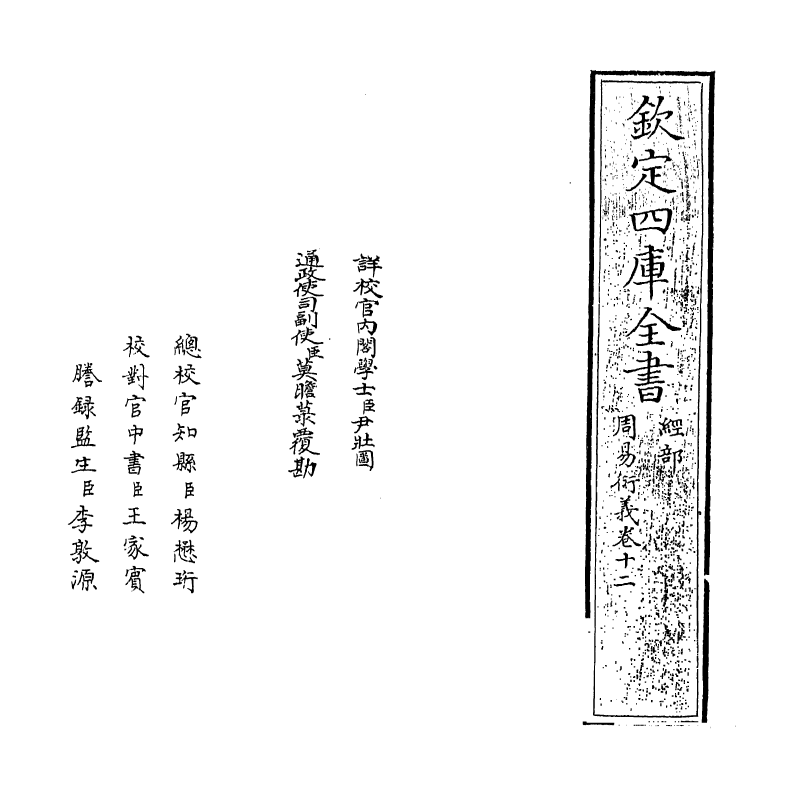 欽定四庫全書
經部
周易衍義卷十二
詳校官內閣學士臣尹壯圖
通政使司副使臣莫瞻菉覆勘
總校官知縣臣楊懋珩
校對官中書臣王家賓
謄録監生臣李敦源